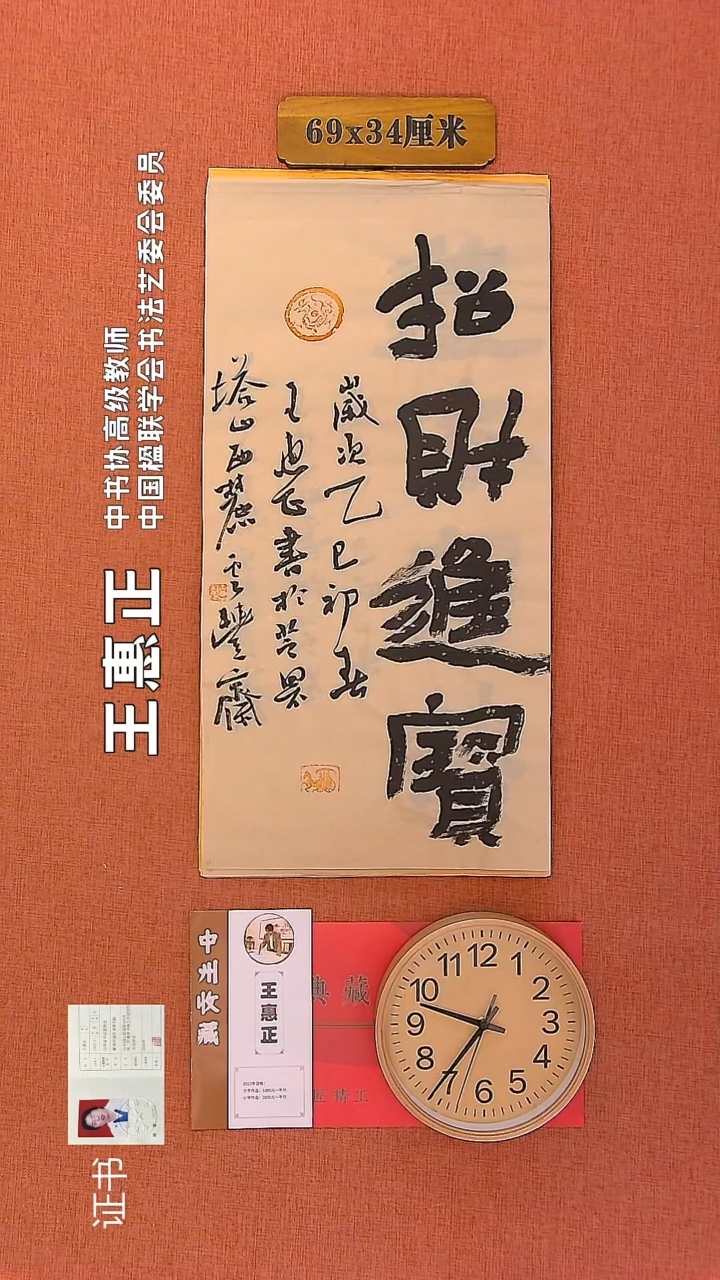 69x34厘米
招财进寶
歲次乙巳初春
王惠正書於芒果
塔山西麓云豐齋
中书协高级教师
中国楹联学会书法艺委会委员
王惠正
中州收藏
王惠正
典藏
匠精工
12
1
2
3
4
5
6
7
8
9
10
11
证书